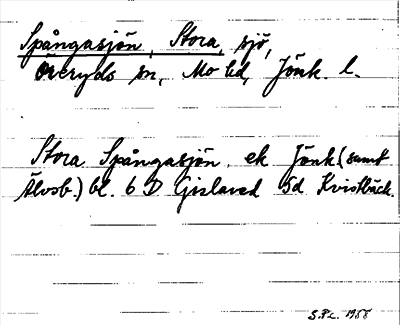 Spångasjön, Stora, sjö,
Öreryds sn, Mo hd, Jönk. l.
Stora Spångasjön ek Jönk (samt
Älvsb.) bl. 6 D Gislaved 5d Kvistbäck.
1958